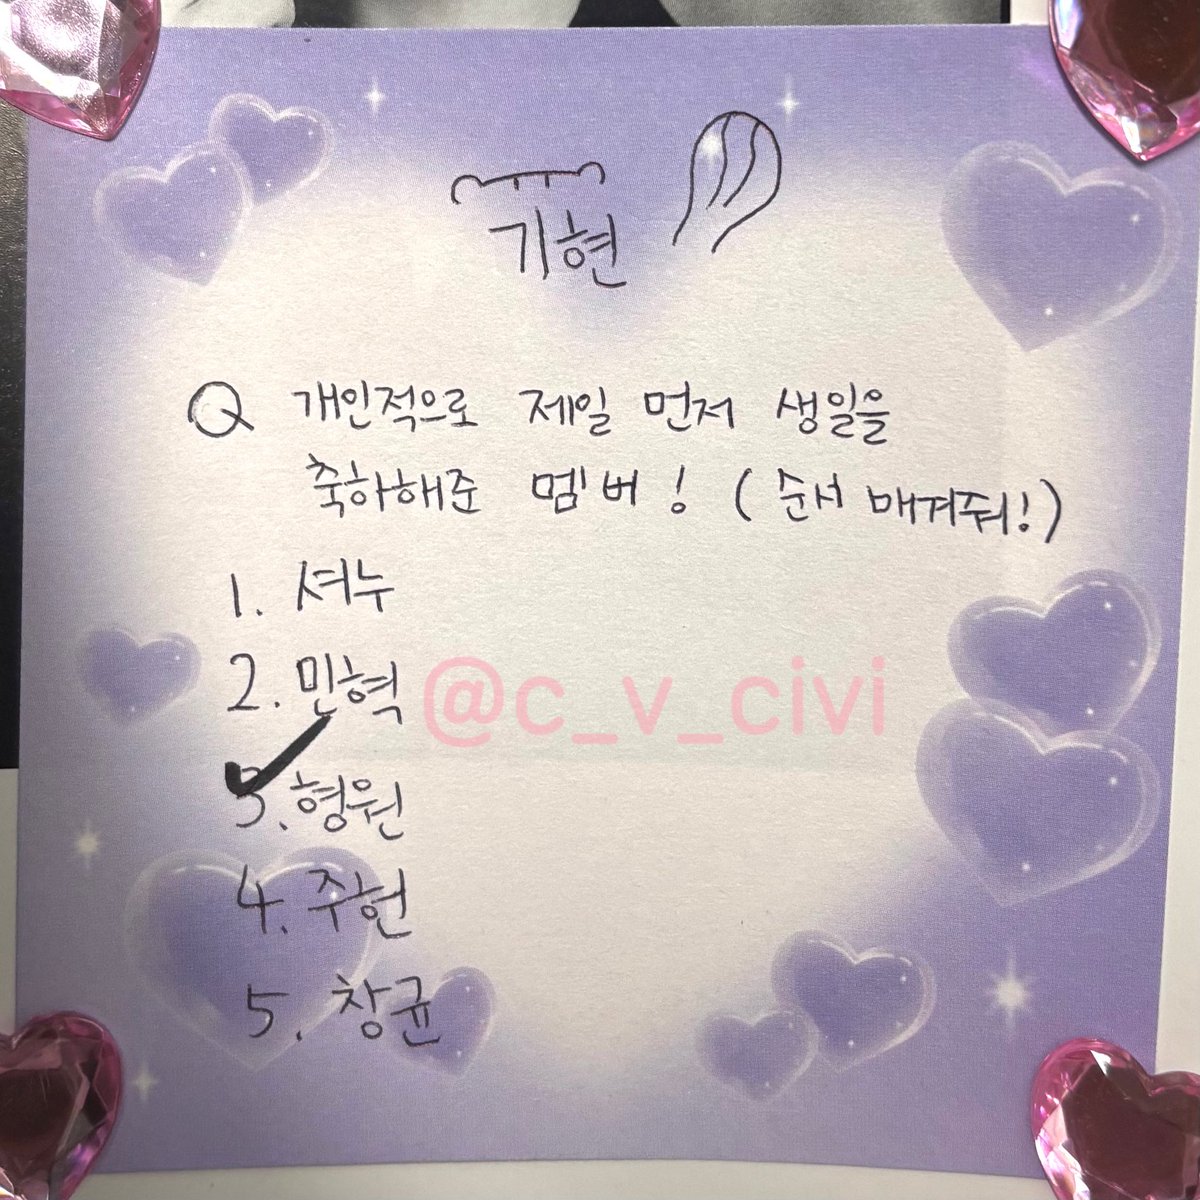 기현
Q 개인적으로 제일 먼저 생일을
축하해준 멤버! (순서 매겨줘!)
1. 셔누
2. 민혁
@c_v_civi
3. 형원
4. 주헌
5. 창균